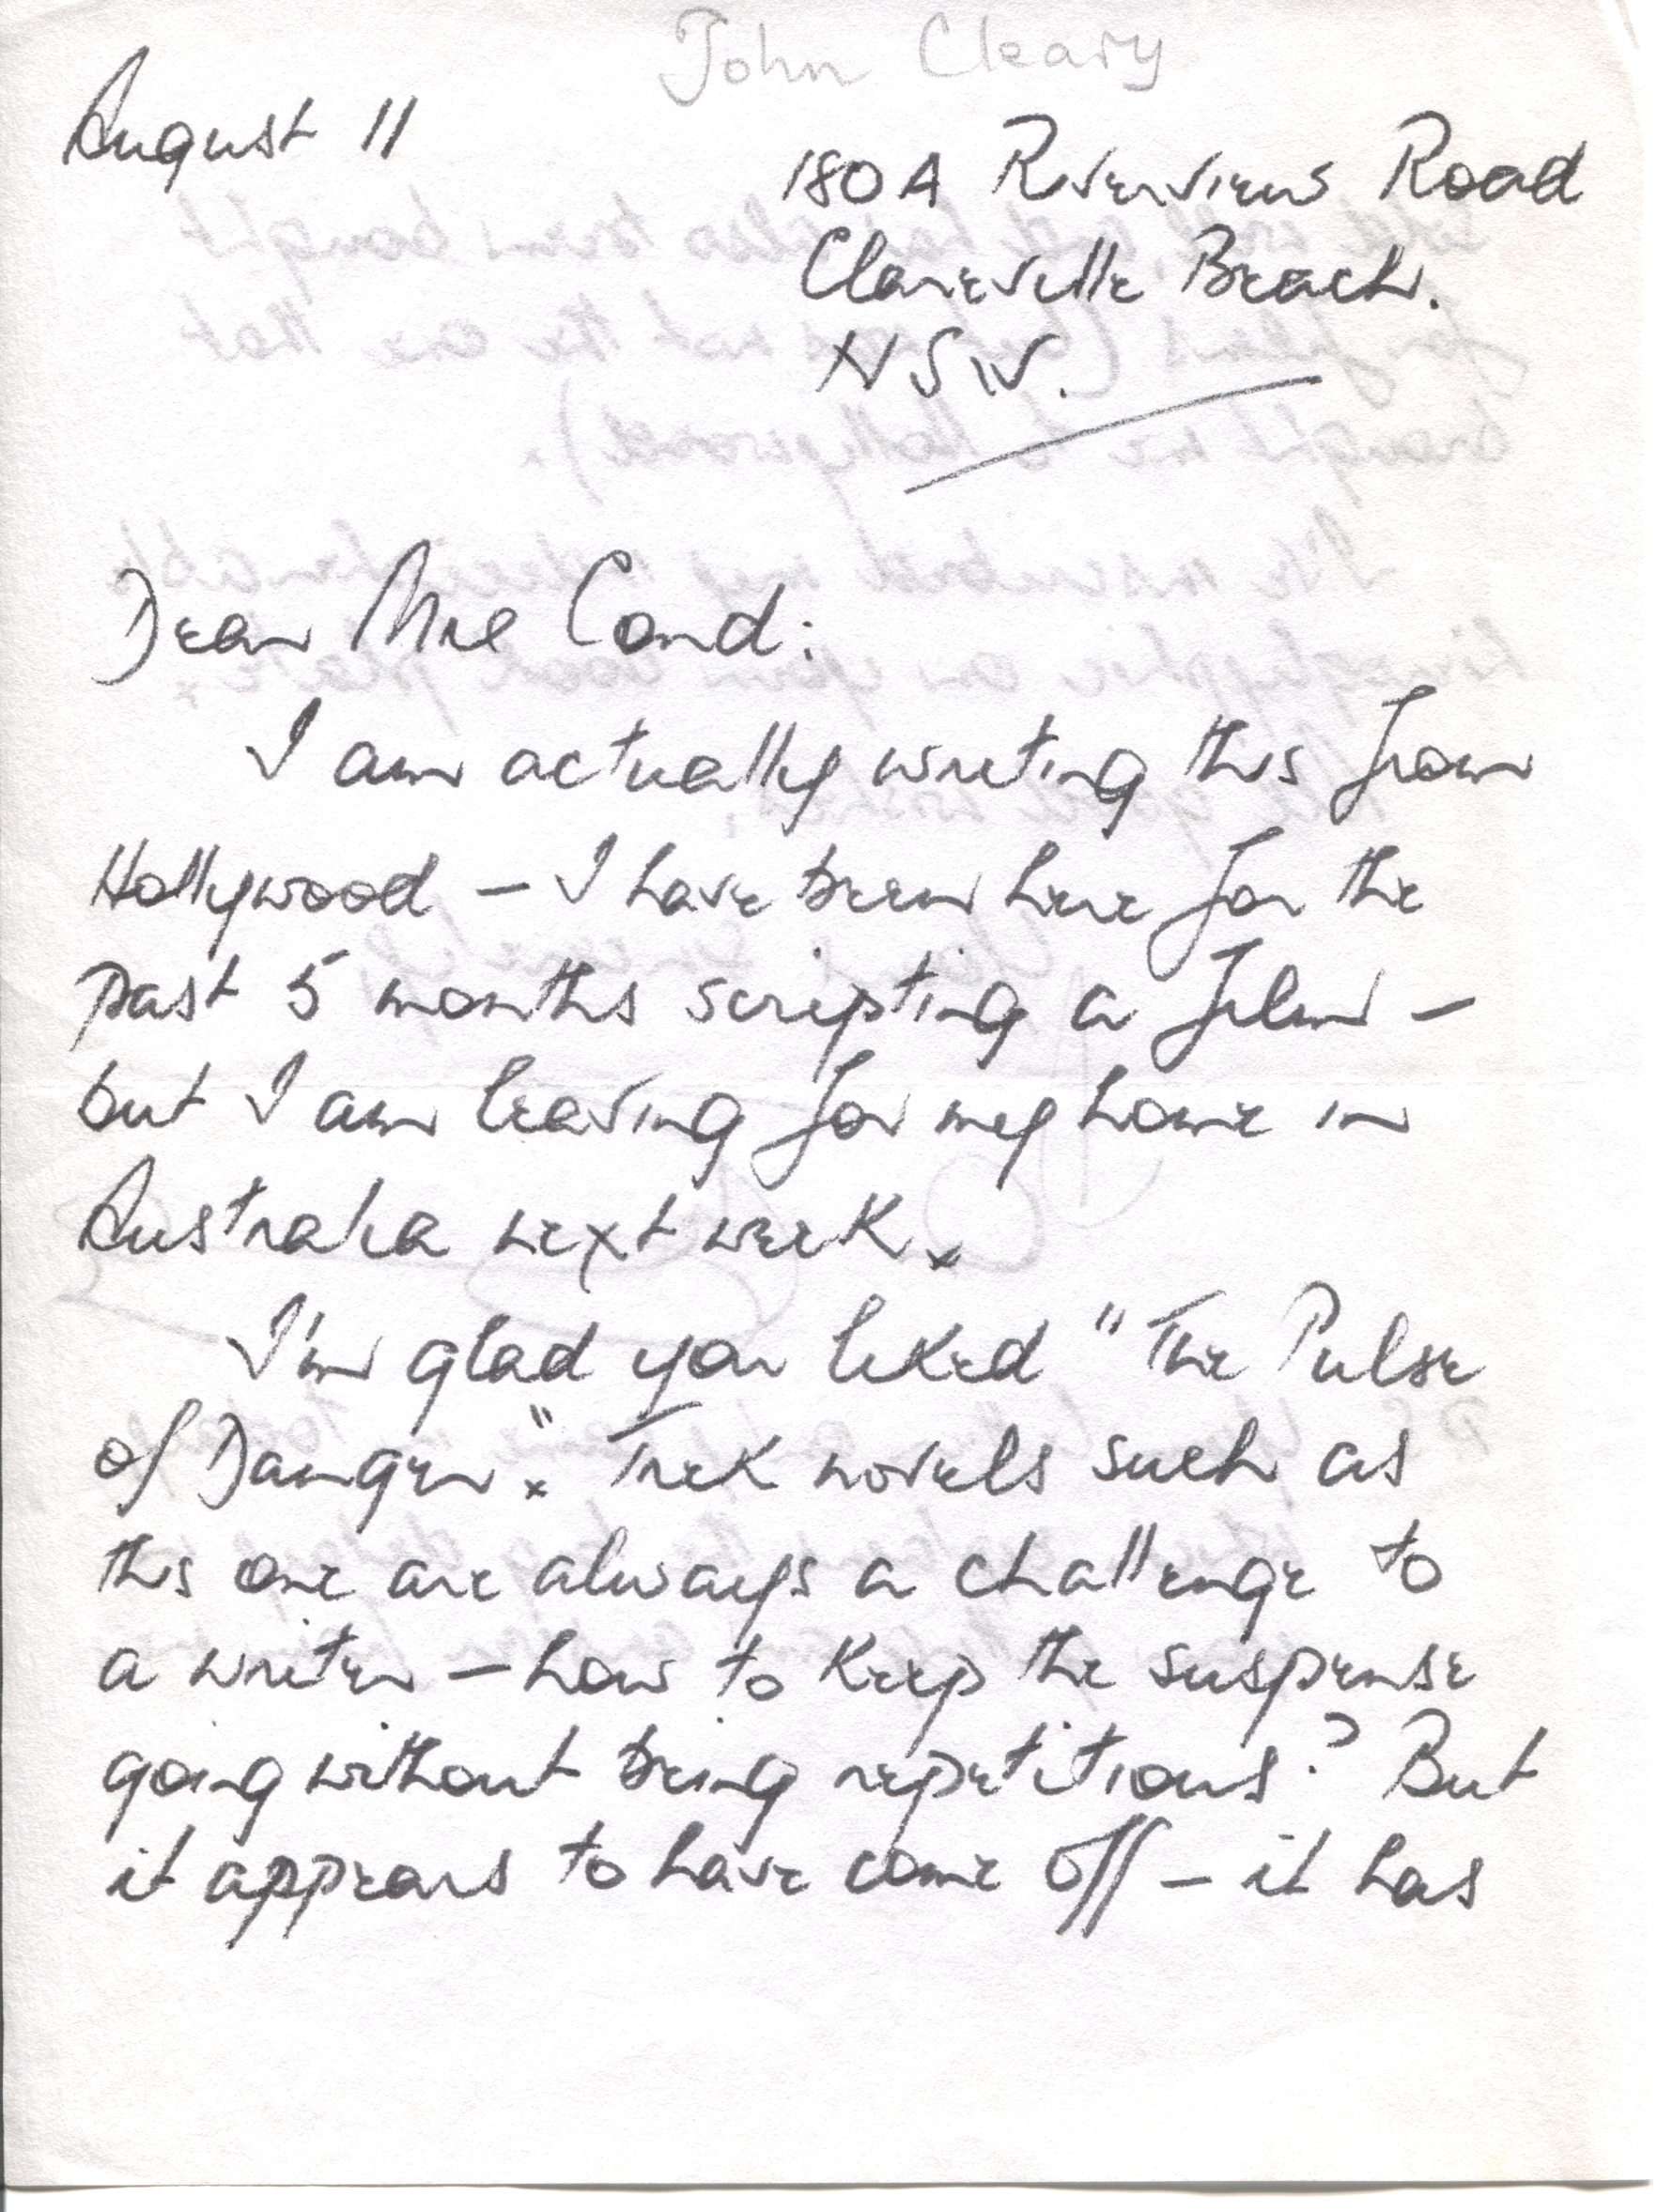 John Cleary
August 11
180A Riverview Road
Clareville Beach.
NSW.
Dear Mrs Cond:
I am actually writing this from
Hollywood – I have been here for the
past 5 months scripting a film –
but I am leaving for my home in
Australia next week.
I'm glad you liked "The Pulse
of Danger". Trek novels such as
this one are always a challenge to
a writer – how to keep the suspense
going without being repetitious? But
it appears to have come off – it has